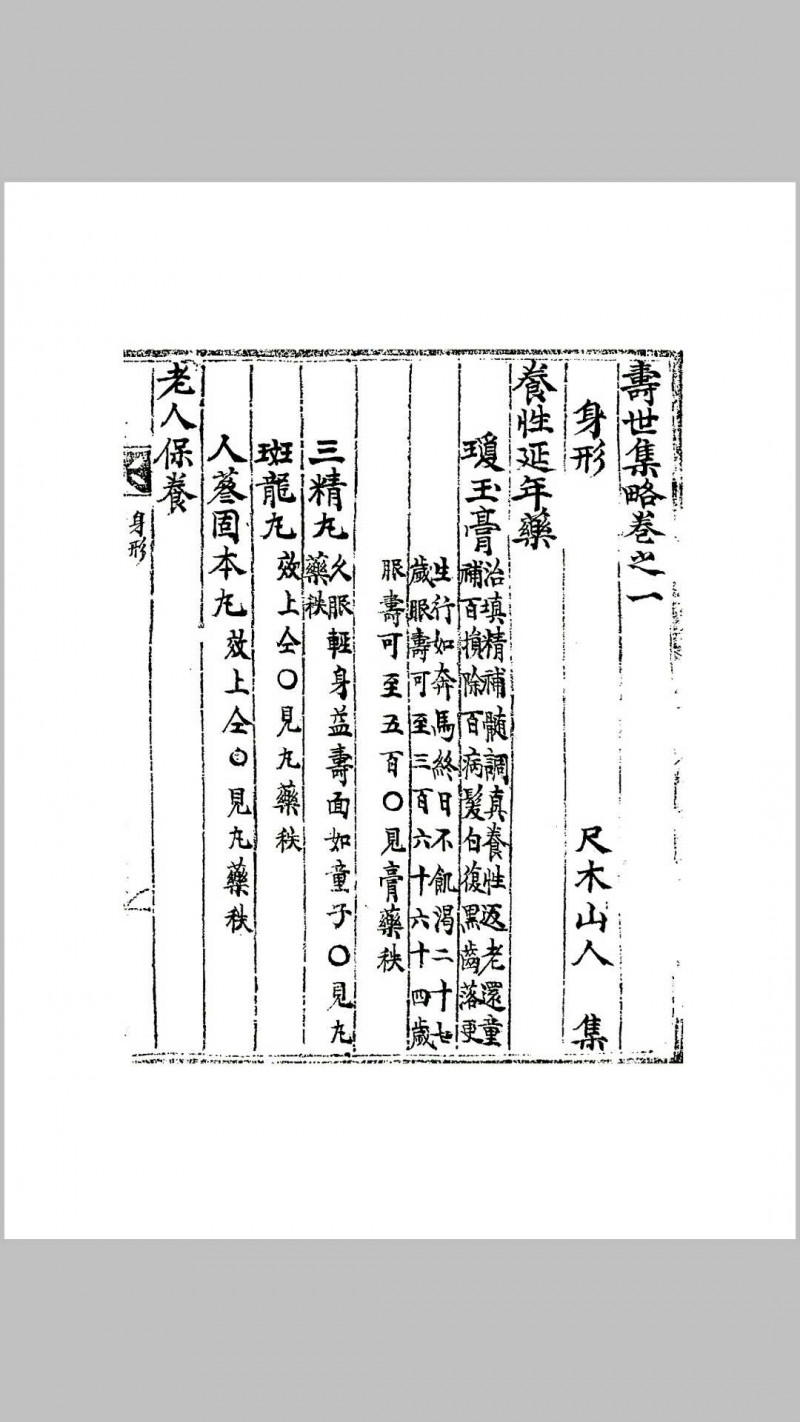 壽世集略卷之一
身形 尺木山人 集
養性延年藥
瓊玉膏 治塡精補髓調眞養性返老還童
補百損除百病髮白復黑齒落更
生行如奔馬終日不飢渴二十七
歲服壽可至三百六十六十四歲
服壽可至五百〇見膏藥秩
三精丸 久服輕身益壽面如童子〇見丸
藥秩
斑龍丸 效上仝〇見丸藥秩
人蔘固本丸 效上仝〇見丸藥秩
老人保養
身形